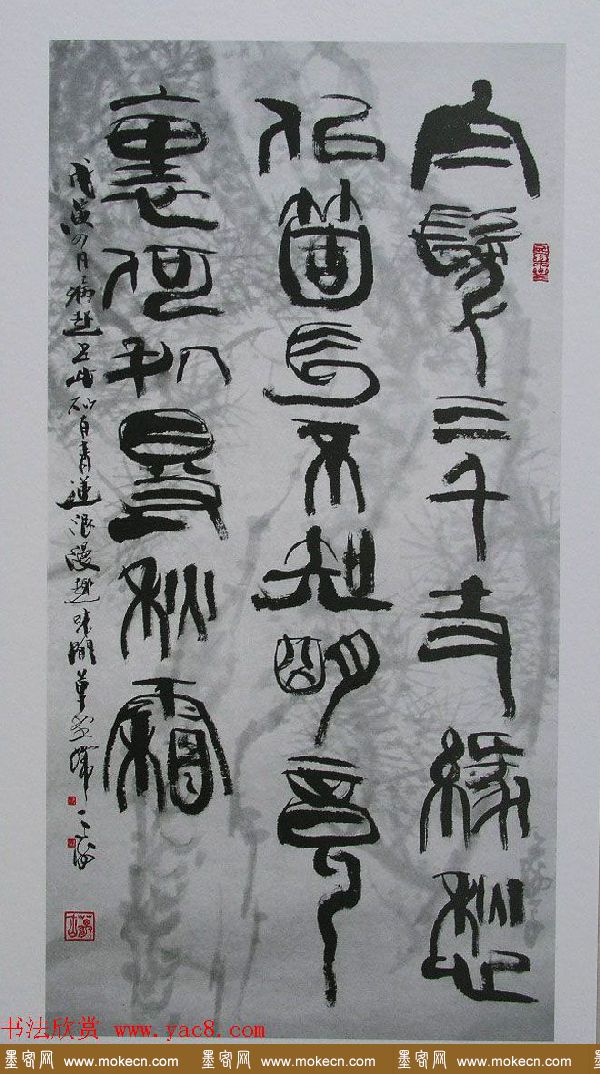 白髮三千丈緣愁
似箇長不知明竟
裏何処㝵秋霜
戊寅四月病起 青蓮浪漫
书法欣赏 www.yac8.com
墨客网 www.mokecn.com 墨客网 www.mokecn.com 墨客网 www.mokecn.com